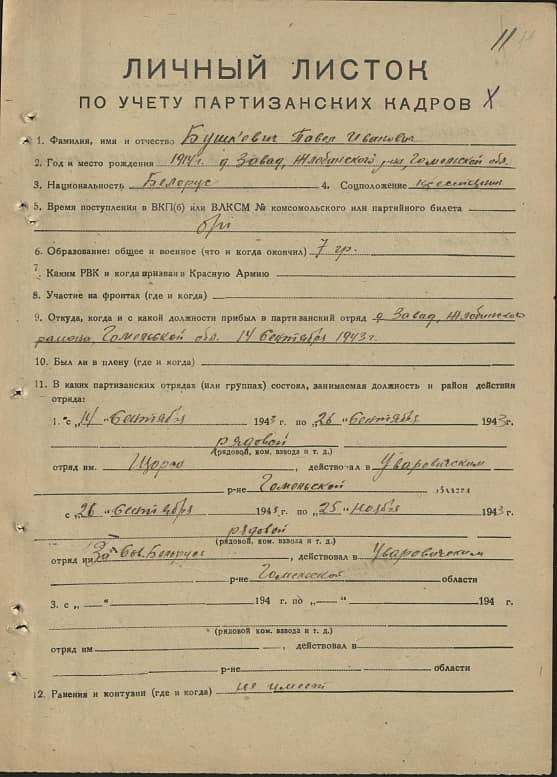 11
ЛИЧНЫЙ ЛИСТОК
ПО УЧЕТУ ПАРТИЗАНСКИХ КАДРОВ
1. Фамилия, имя и отчество Бушкевич Павел Иванович
2. Год и место рождения 1914 г. д. Завад, Жлобинского р-на, Гомельской обл.
3. Национальность Белорус 4. Соцположение крестьянин
5. Время поступления в ВКП(б) или ВЛКСМ № комсомольского или партийного билета
б/п
6. Образование: общее и военное (что и когда окончил) 7 гр.
7. Каким РВК и когда призван в Красную Армию
8. Участие на фронтах (где и когда)
9. Откуда, когда и с какой должности прибыл в партизанский отряд д. Завад, Жлобинского
района, Гомельской обл. 14 Сентября 1943 г.
10. Был ли в плену (где и когда)
11. В каких партизанских отрядах (или группах) состоял, занимаемая должность и район действия
отряда:
1. с „14" Сентября 1943 г. по „26" Сентября 1943 г.
рядовой
(рядовой, ком. взвода и т. д.)
отряд им. Щорса, действовал в Уваровичским
р-не Гомельской области
с „26" Сентября 1943 г. по „25" Ноября 1943 г.
рядовой
(рядовой, ком. взвода и т. д.)
отряд им За Сов. Беларусь, действовал в Уваровичским
р-не Гомельской области
3. с „ —" 194 г. по „ —" 194 г.
(рядовой ком. взвода и т. д.)
отряд им , действовал в
р-не области
12. Ранения и контузии (где и когда) не имеет